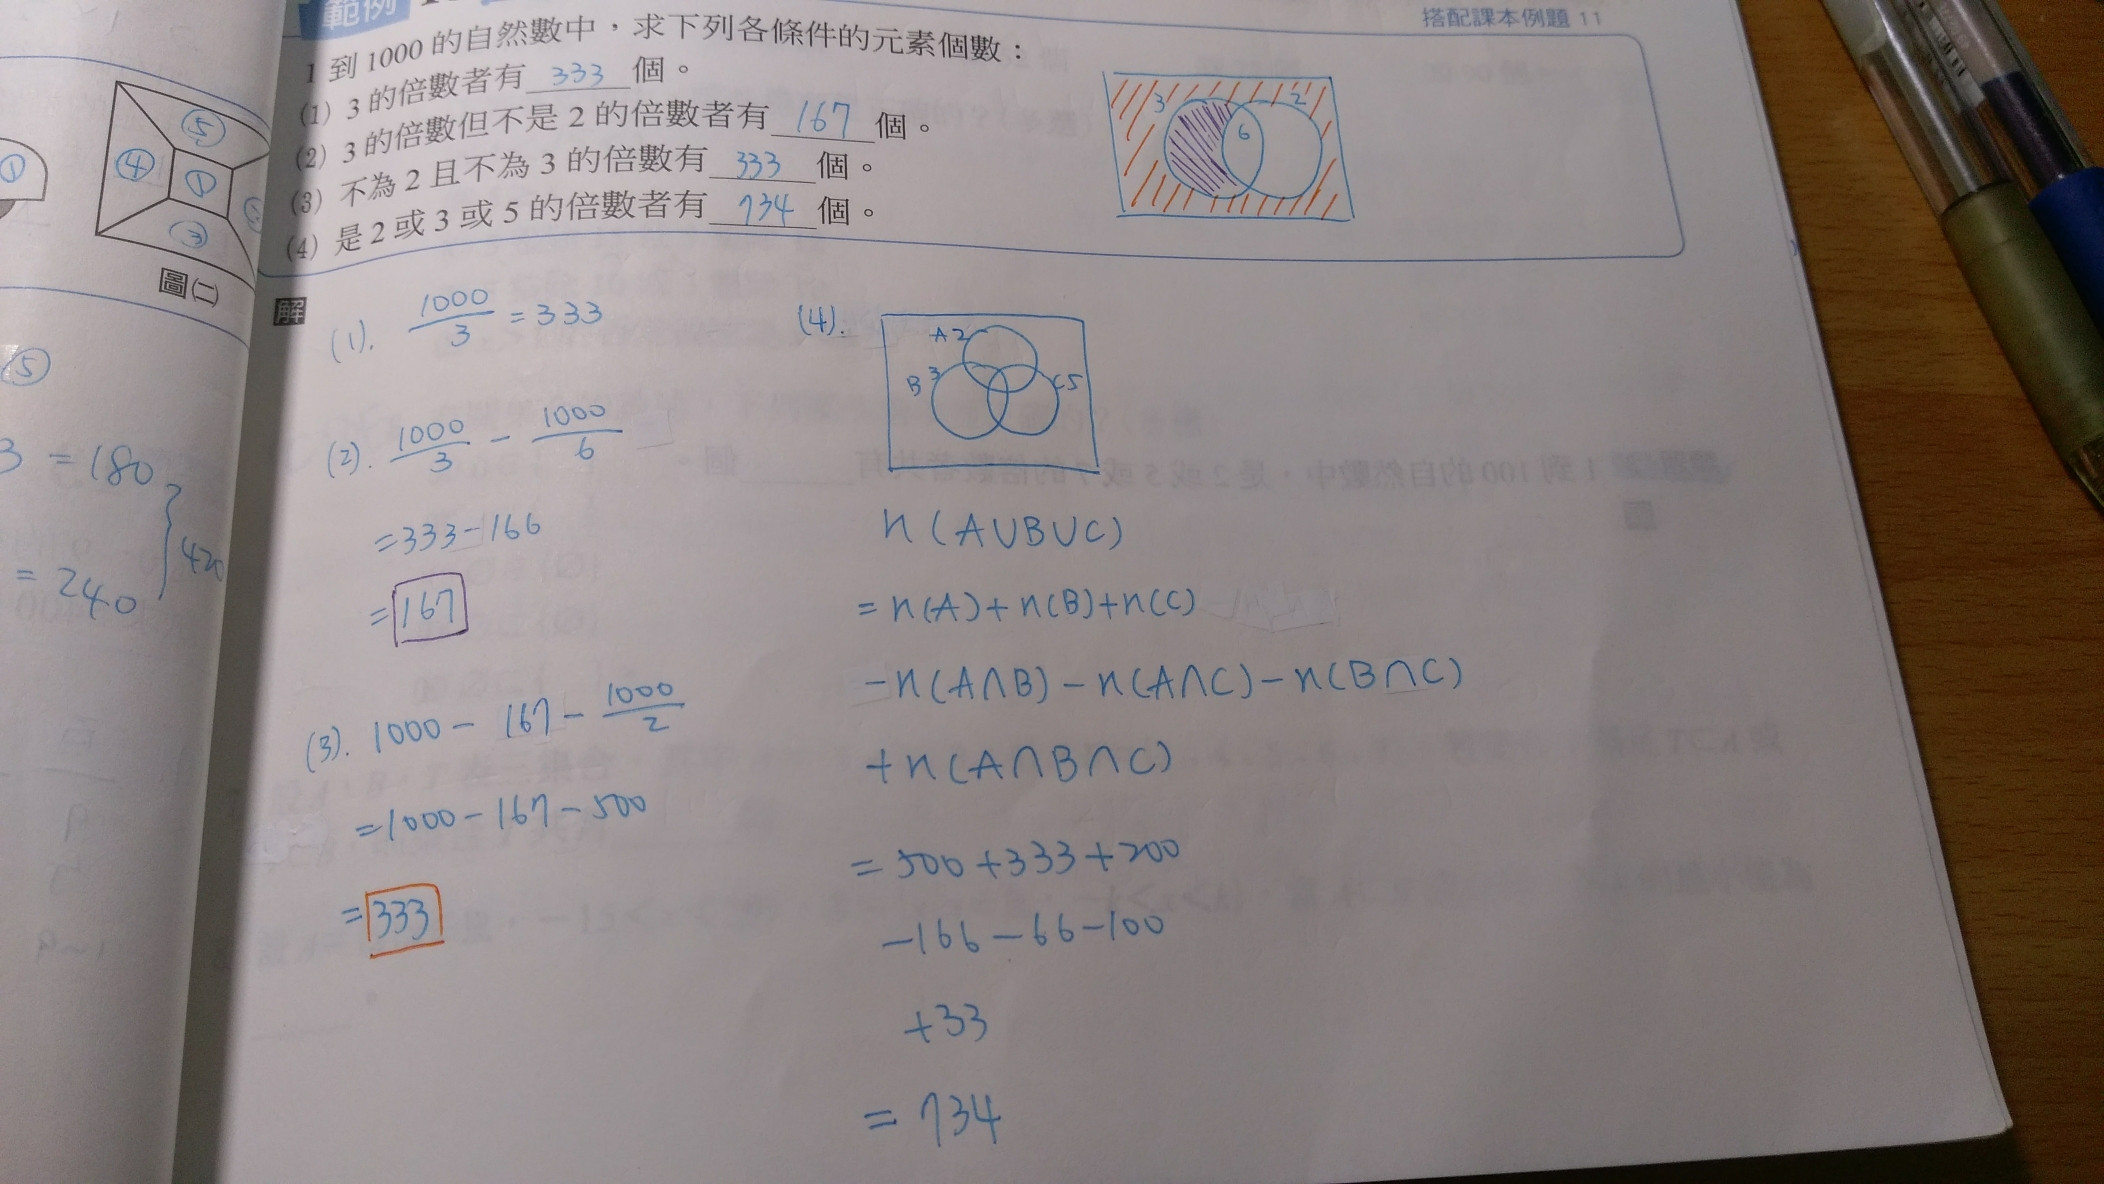 範例
搭配課本例題 11
1 到 1000 的自然數中，求下列各條件的元素個數：
(1) 3 的倍數者有 333 個。
(2) 3 的倍數但不是 2 的倍數者有 167 個。
(3) 不為 2 且不為 3 的倍數有 333 個。
(4) 是 2 或 3 或 5 的倍數者有 734 個。
3 6 2
解
(1). 1000/3 = 333
(2). 1000/3 - 1000/6
= 333 - 166
= 167
(3). 1000 - 167 - 1000/2
= 1000 - 167 - 500
= 333
(4).
A 2
B 3
C 5
n(A∪B∪C)
= n(A) + n(B) + n(C)
- n(A∩B) - n(A∩C) - n(B∩C)
+ n(A∩B∩C)
= 500 + 333 + 200
- 166 - 66 - 100
+ 33
= 734
①
⑤
④ ①
③
圖(二)
⑤
3 = 180
= 240
420